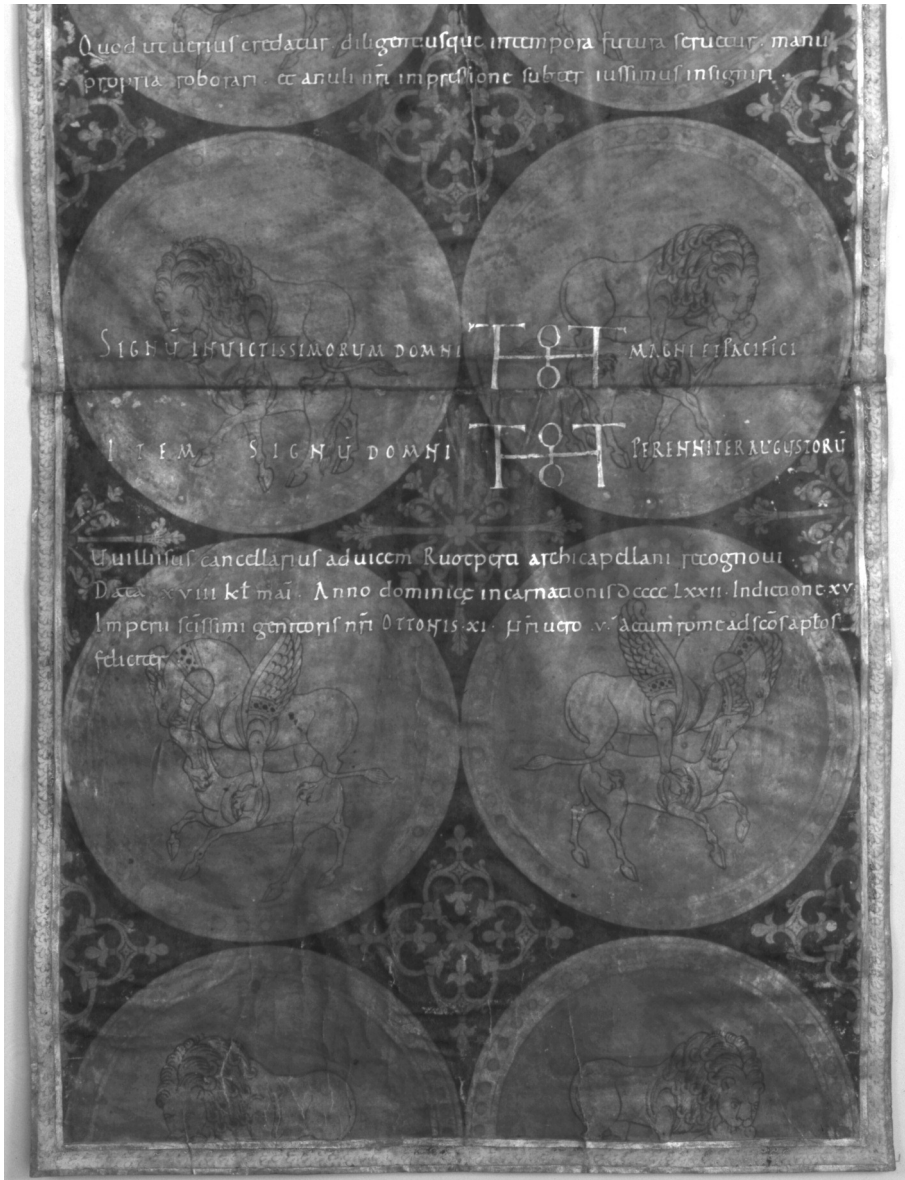 Quod ut uerius credatur diligentiusque in tempora futura seruetur . manu
propria roborari . et anuli nr̄i impressione subter iussimus insigniri .
SIGNŪ INVICTISSIMORUM DOMNI MAGNI ET PACIFICI
ITEM SIGNŪ DOMNI PERENNITER AUGUSTORŪ
Uuilligisus cancellarius aduicem Ruotperti archicapellani recognoui .
Data XVIII kł mai . Anno dominicę incarnationis DCCCC LXXII . Indictione XV
Imperii sc̄issimi genitoris nr̄i OTTONIS . XI . nr̄i uero . v . Actum rome ad sc̄os apłos
feliciter